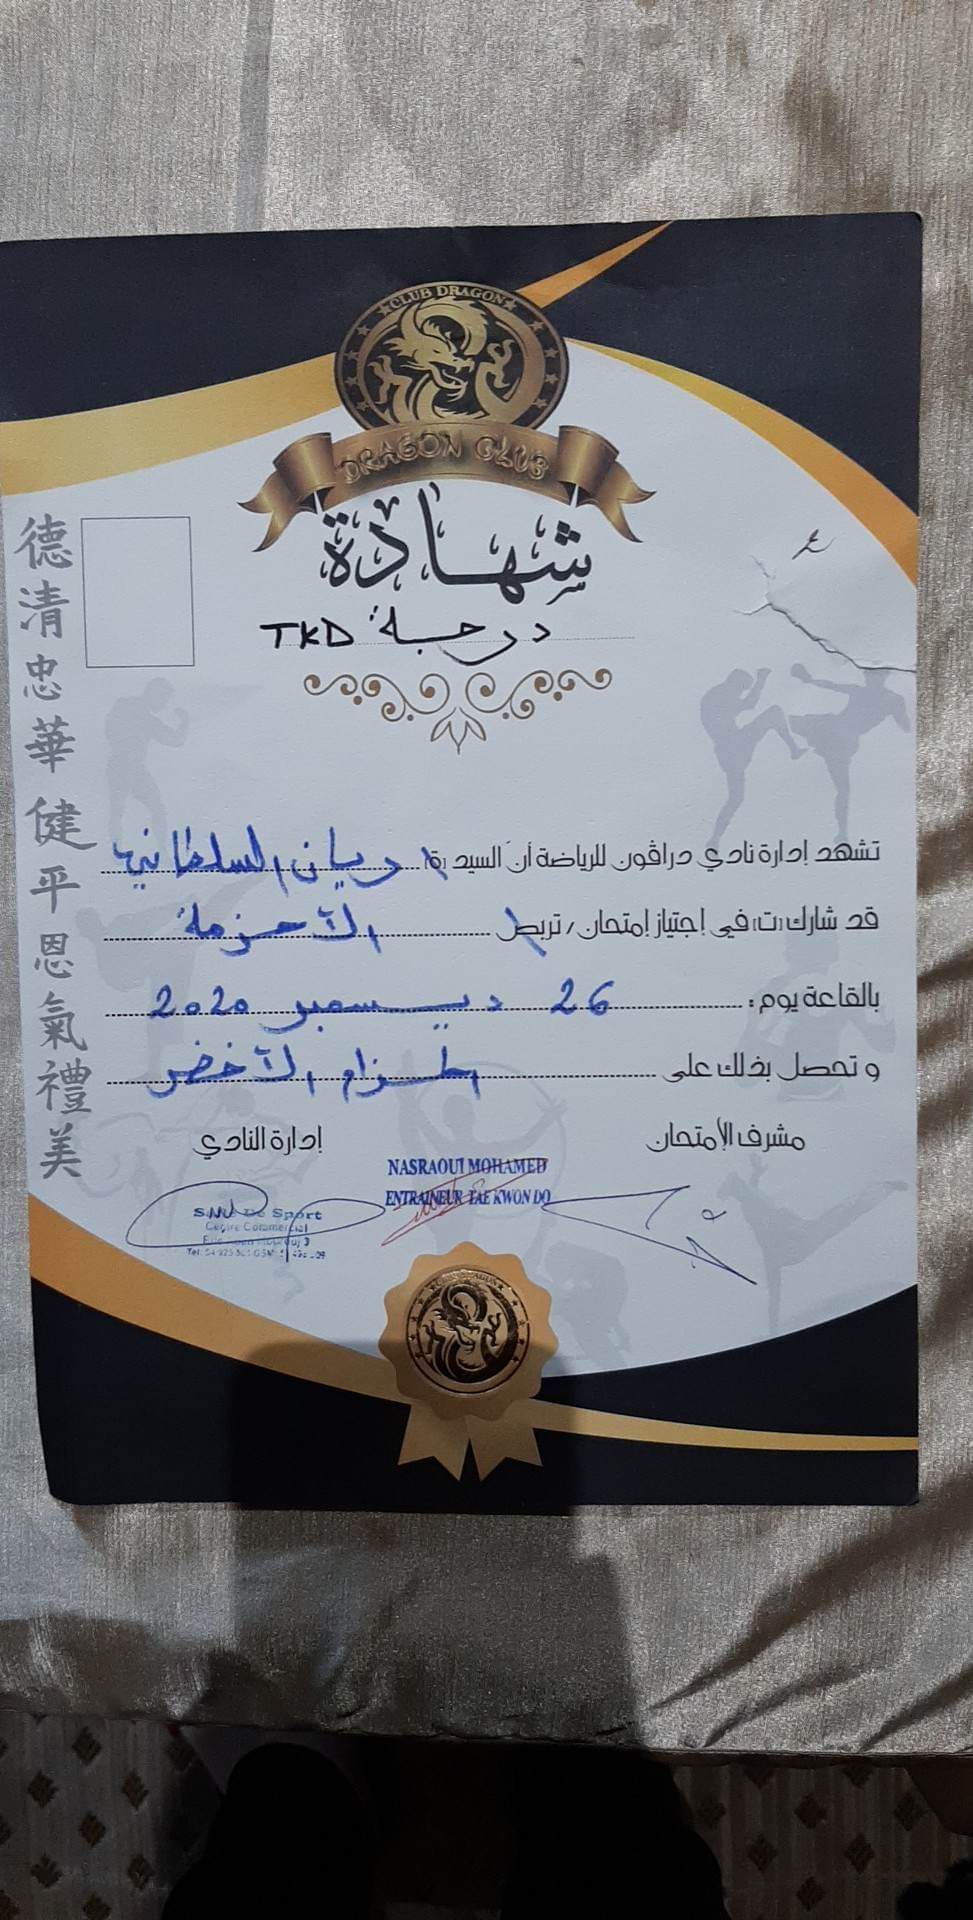 CLUB DRAGON
DRAGON CLUB
شهادة
درجة TKD
德清忠華健平恩氣禮美
تشهد إدارة نادي دراڨون للرياضة أن السيد (ة) ريان السلطاني
قد شارك (ت) في إجتياز إمتحان / تربص الأحزمة
بالقاعة يوم : 26 ديسمبر 2020
و تحصل بذلك على الحزام الأخضر
مشرف الأمتحان
إدارة النادي
NASRAOUI MOHAMED
ENTRAINEUR TAE KWON DO
De Sport
Centre Commercial
Tel: